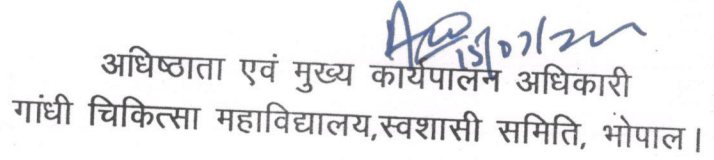 15/07/22
अधिष्ठाता एवं मुख्य कार्यपालन अधिकारी
गांधी चिकित्सा महाविद्यालय,स्वशासी समिति, भोपाल।